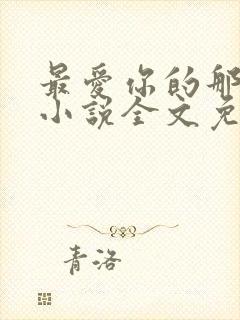 最爱你的那
小说全文免
青洛